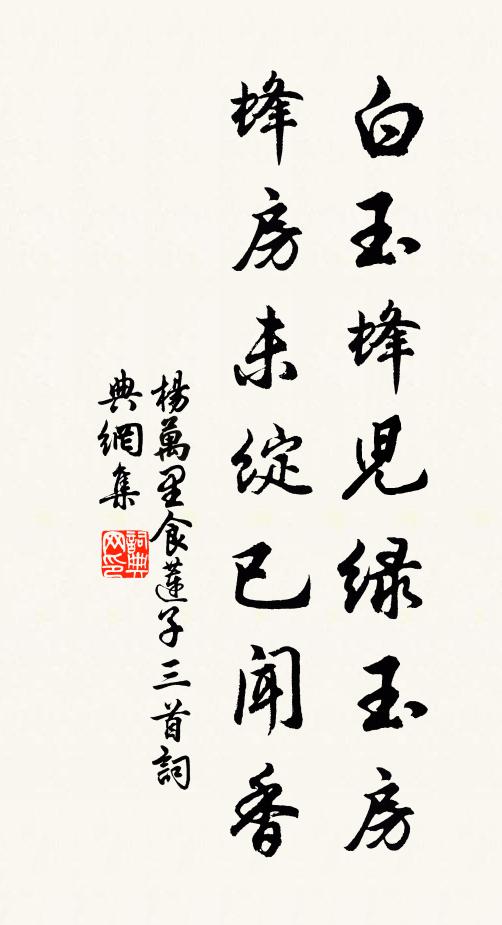 白玉蜂児绿玉房
蜂房未綻已闻香
楊萬里食蓮子三首詞
典網集
詞典网印